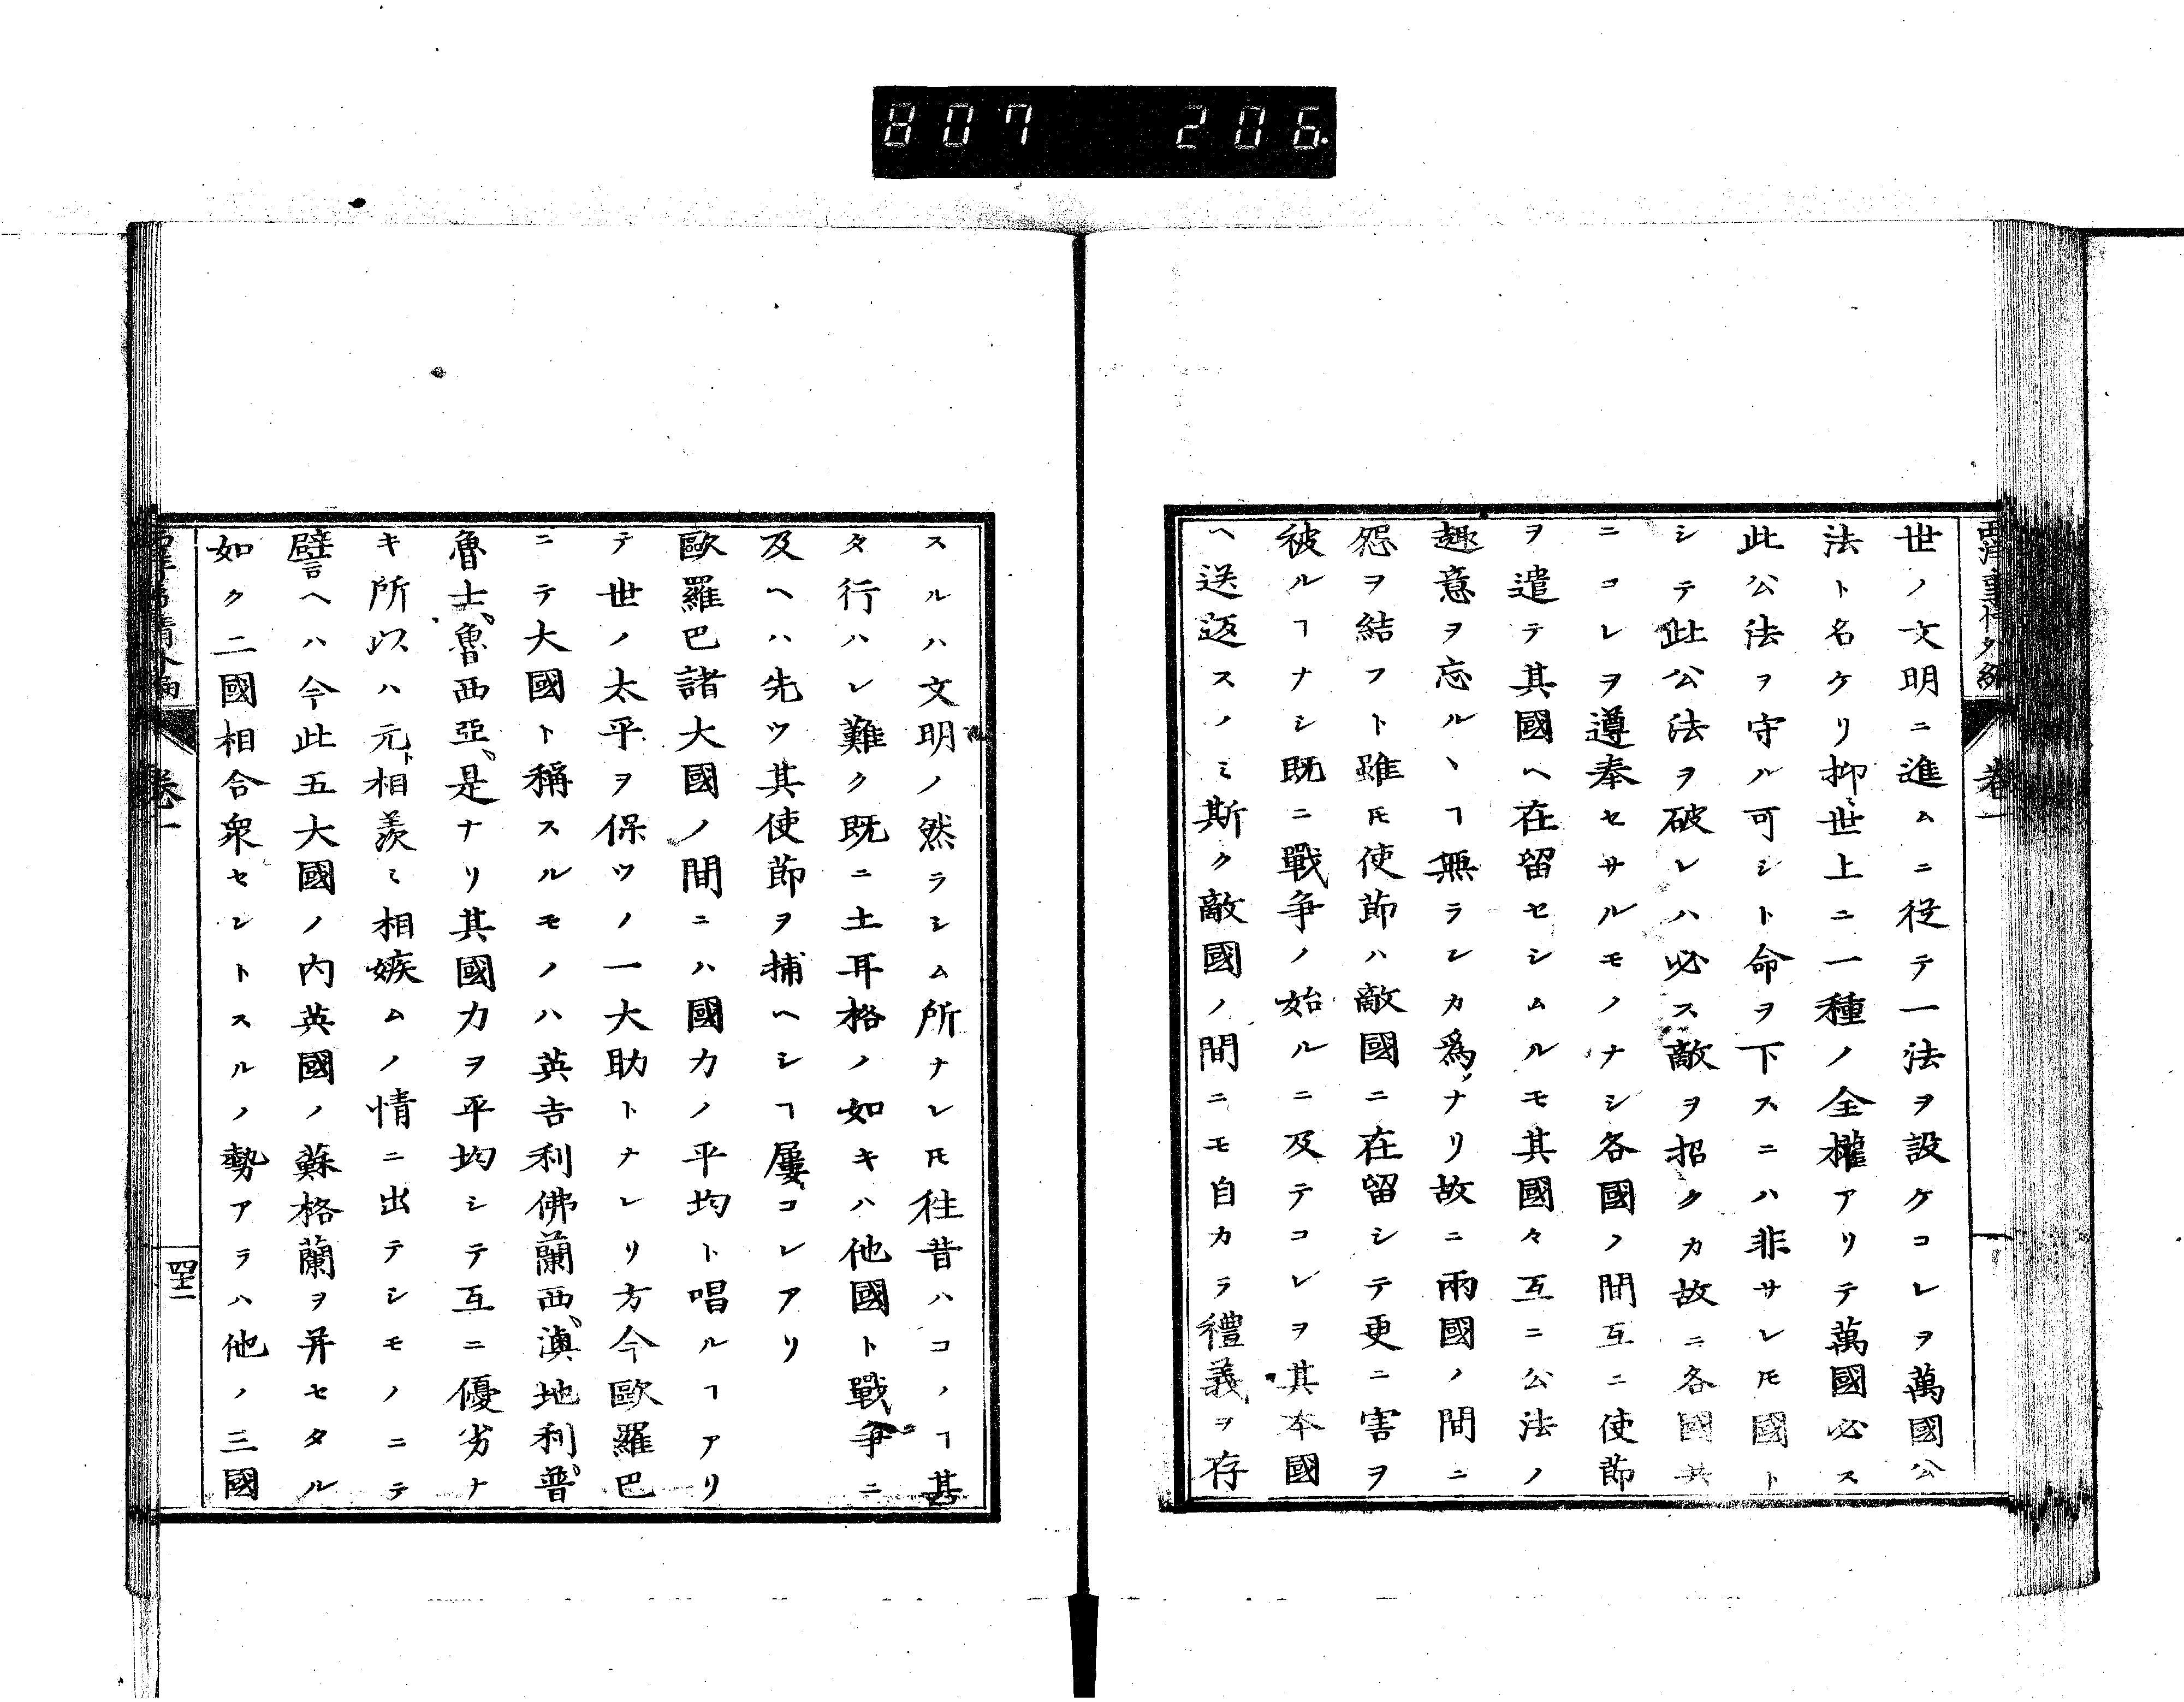 807 206.
世ノ文明ニ進ムニ従テ一法ヲ設ケコレヲ萬國公
法ト名ケリ抑〻世上ニ一種ノ全權アリテ萬國必ス
此公法ヲ守ル可シト命ヲ下スニハ非サレ𪜈國ト
シテ此公法ヲ破レハ必ス敵ヲ招クカ故ニ各國共
ニコレヲ遵奉セサルモノナシ各國ノ間互ニ使節
ヲ遣テ其國ヘ在留セシムルモ其國々互ニ公法ノ
趣意ヲ忘ルヽヿ無ランカ爲ナリ故ニ兩國ノ間ニ
怨ヲ結フト雖𪜈使節ハ敵國ニ在留シテ更ニ害ヲ
被ルヿナシ既ニ戰爭ノ始ルニ及テコレヲ其本國
ヘ送返スノミ斯ク敵國ノ間ニモ自カラ禮義ヲ存
スルハ文明ノ然ラシム所ナレ𪜈往昔ハコノヿ甚
タ行ハレ難ク既ニ土耳格ノ如キハ他國ト戰爭ニ
及ヘハ先ツ其使節ヲ捕ヘシヿ屢〻コレアリ
歐羅巴諸大國ノ間ニハ國力ノ平均ト唱ルヿアリ
テ世ノ太平ヲ保ツノ一大助トナレリ方今歐羅巴
ニテ大國ト稱スルモノハ英吉利佛蘭西、澳地利、普
魯士、魯西亞、是ナリ其國力ヲ平均シテ互ニ優劣ナ
キ所以ハ元ト相羨ミ相嫉ムノ情ニ出テシモノニテ
譬ヘハ今此五大國ノ内英國ノ蘇格蘭ヲ并セタル
如ク二國相合衆セントスルノ勢アラハ他ノ三國
卷一
四十二